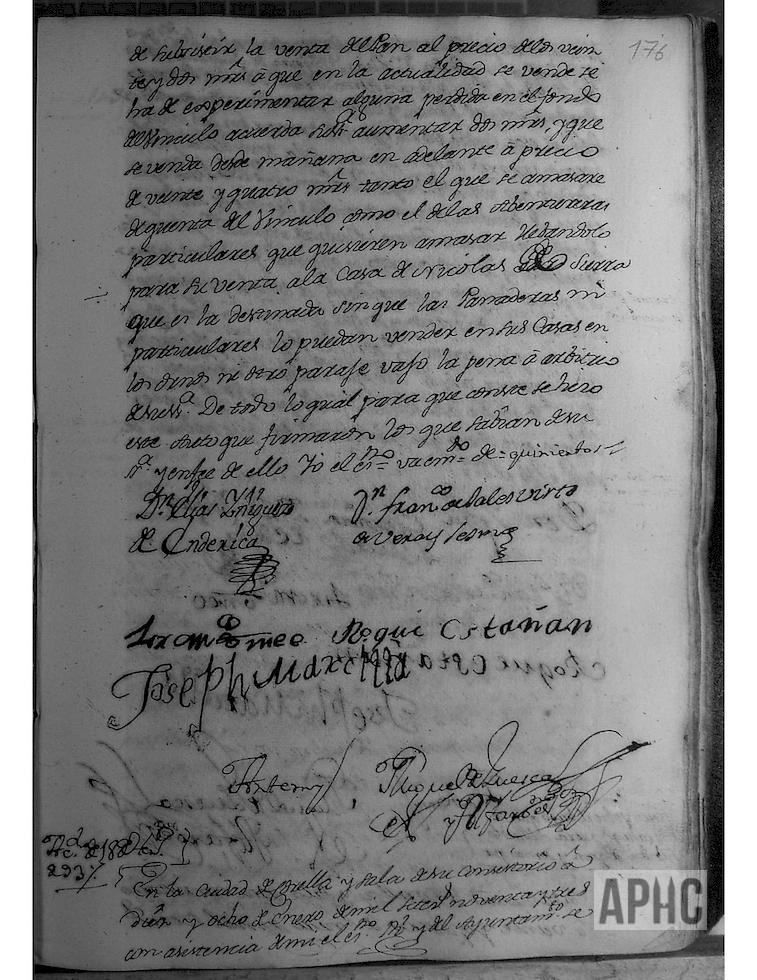 176
de subsistir la venta del Pan al precio de los vein
te y dos mrs à que en la actualidad se vende se
ha de experimentar alguna perdida en el fondo
del Vinculo acuerda su Sª aumentar dos mrs, y que
se venda desde mañana en adelante à precio
de veinte y quatro mrs tanto el que se amasare
de quenta del Vinculo como el de las Abentureras
particulares que quisieren amasar llebandolo
para su venta a la Casa de Nicolas Sierra
que es la destinada sin que las Panaderas ni
particulares lo puedan vender en sus Casas en
los ni otro paraje vajo la pena à arbitrio
De todo lo qual para que conste se hizo
este Auto que firmaron los que sabian de su
Sª y en fee de ello Yo el essno = vª emdo = de = quinientos =
Dn Elias Yñiguez
de Enderica
Dn Franco de Sales Virto
de Vera y Lesma
Roque Estañan
Joseph Marcilla
Antemy
Miguel de Luesca
y Alfaro
18 de
293
En la Ciudad de Corella y Sala de su Consistorio à
diez y ocho de Enero de mil setez noventa y tres
con asistencia de mi el essno Rl y del Ayuntamto se
APHC